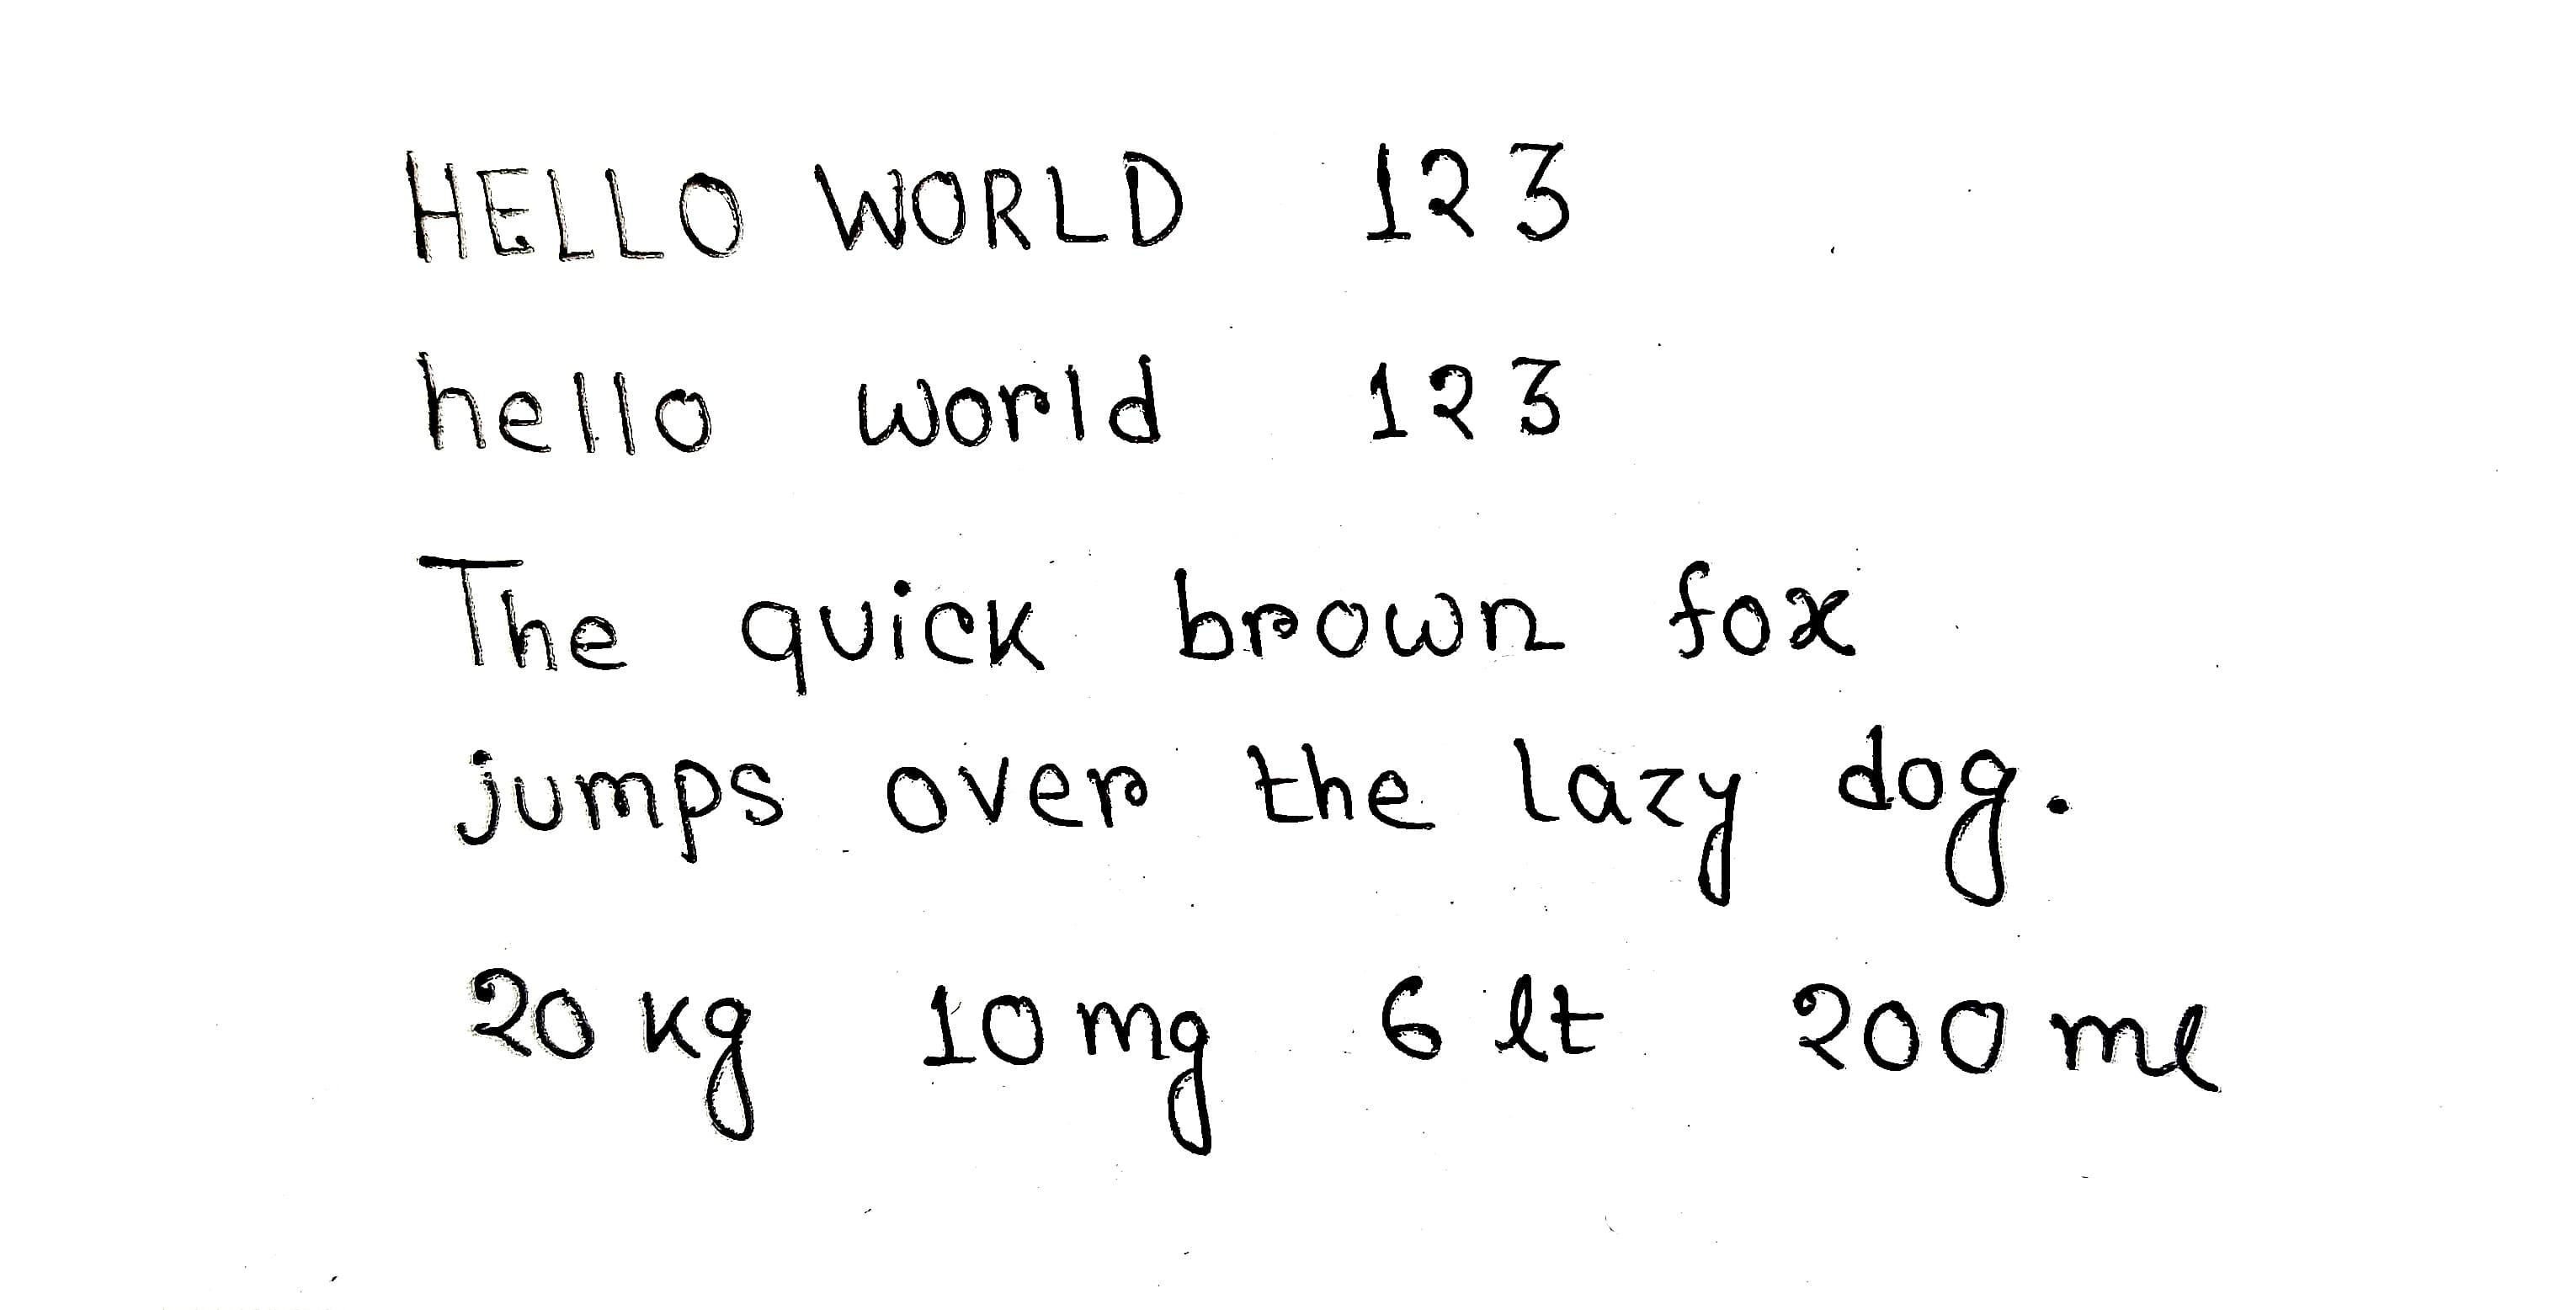 HELLO WORLD 123
hello world 123
The quick brown fox
jumps over the lazy dog.
20 kg 10 mg 6 lt 200 ml